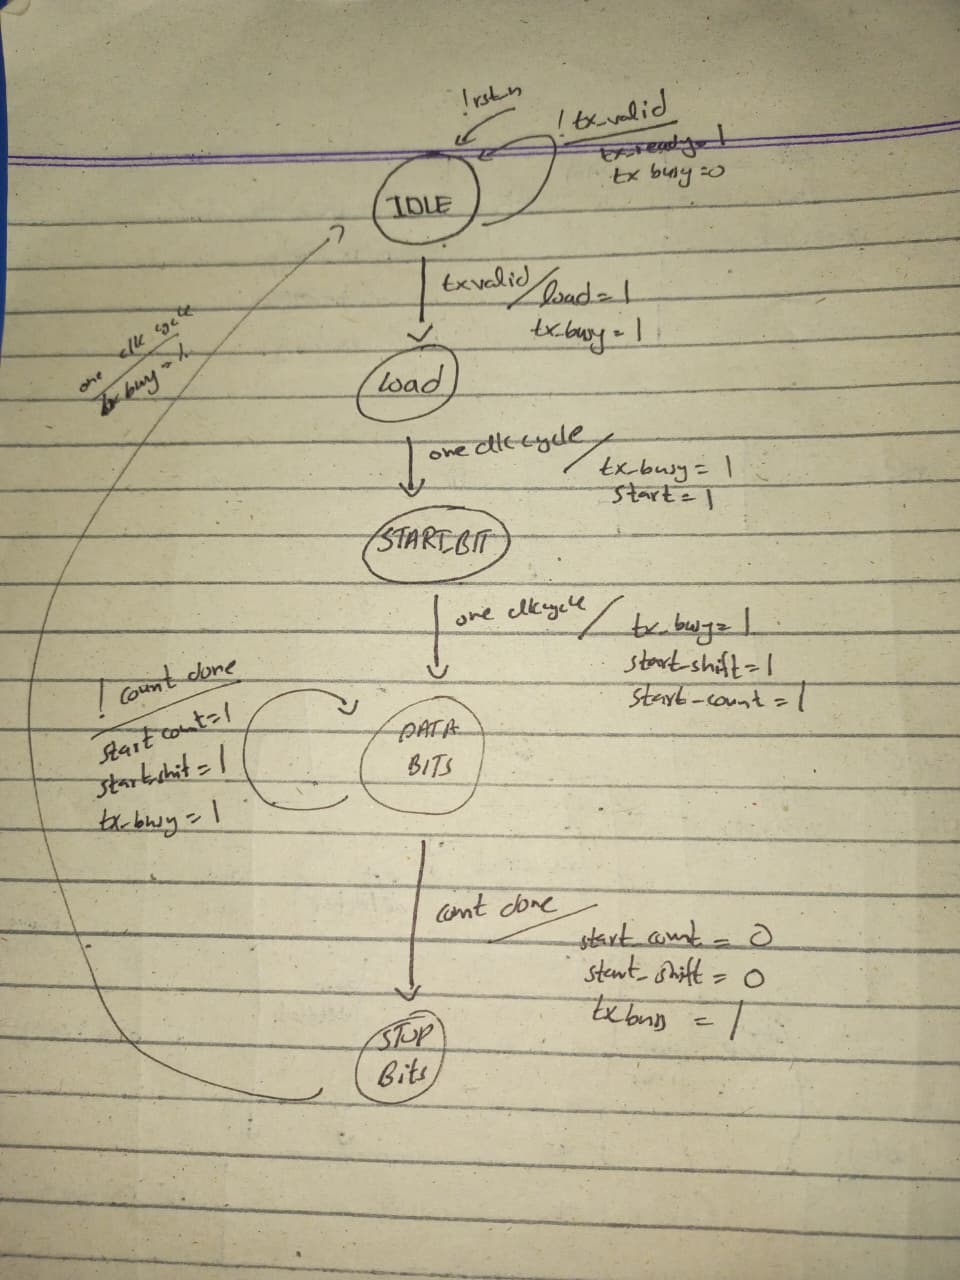 !rst_n
! tx_valid
tx_ready = 1
tx busy = 0
IDLE
txvalid / load = 1
tx_busy = 1
one clk cycle
tx busy = 1
load
one clk cycle / tx_busy = 1
start = 1
START_BIT
one clkcycle / tx_busy = 1
start_shift = 1
start_count = 1
! count done
start count = 1
start_shit = 1
tx_busy = 1
DATA
BITS
count done
start_count = 0
start_shift = 0
tx busy = 1
STOP
Bits